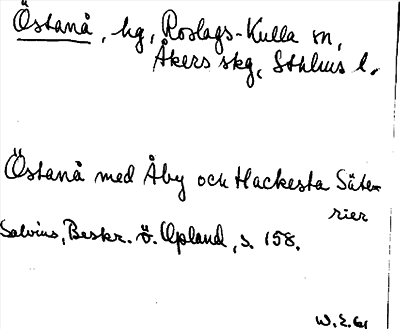 Östanå, hg, Roslags-Kulla sn,
Åkers skg, Sthlms l.
Östanå med Åby och Hackesta Säte-
rier
Salvius, Beskr. ö. Upland, s. 158.
W.E. 61